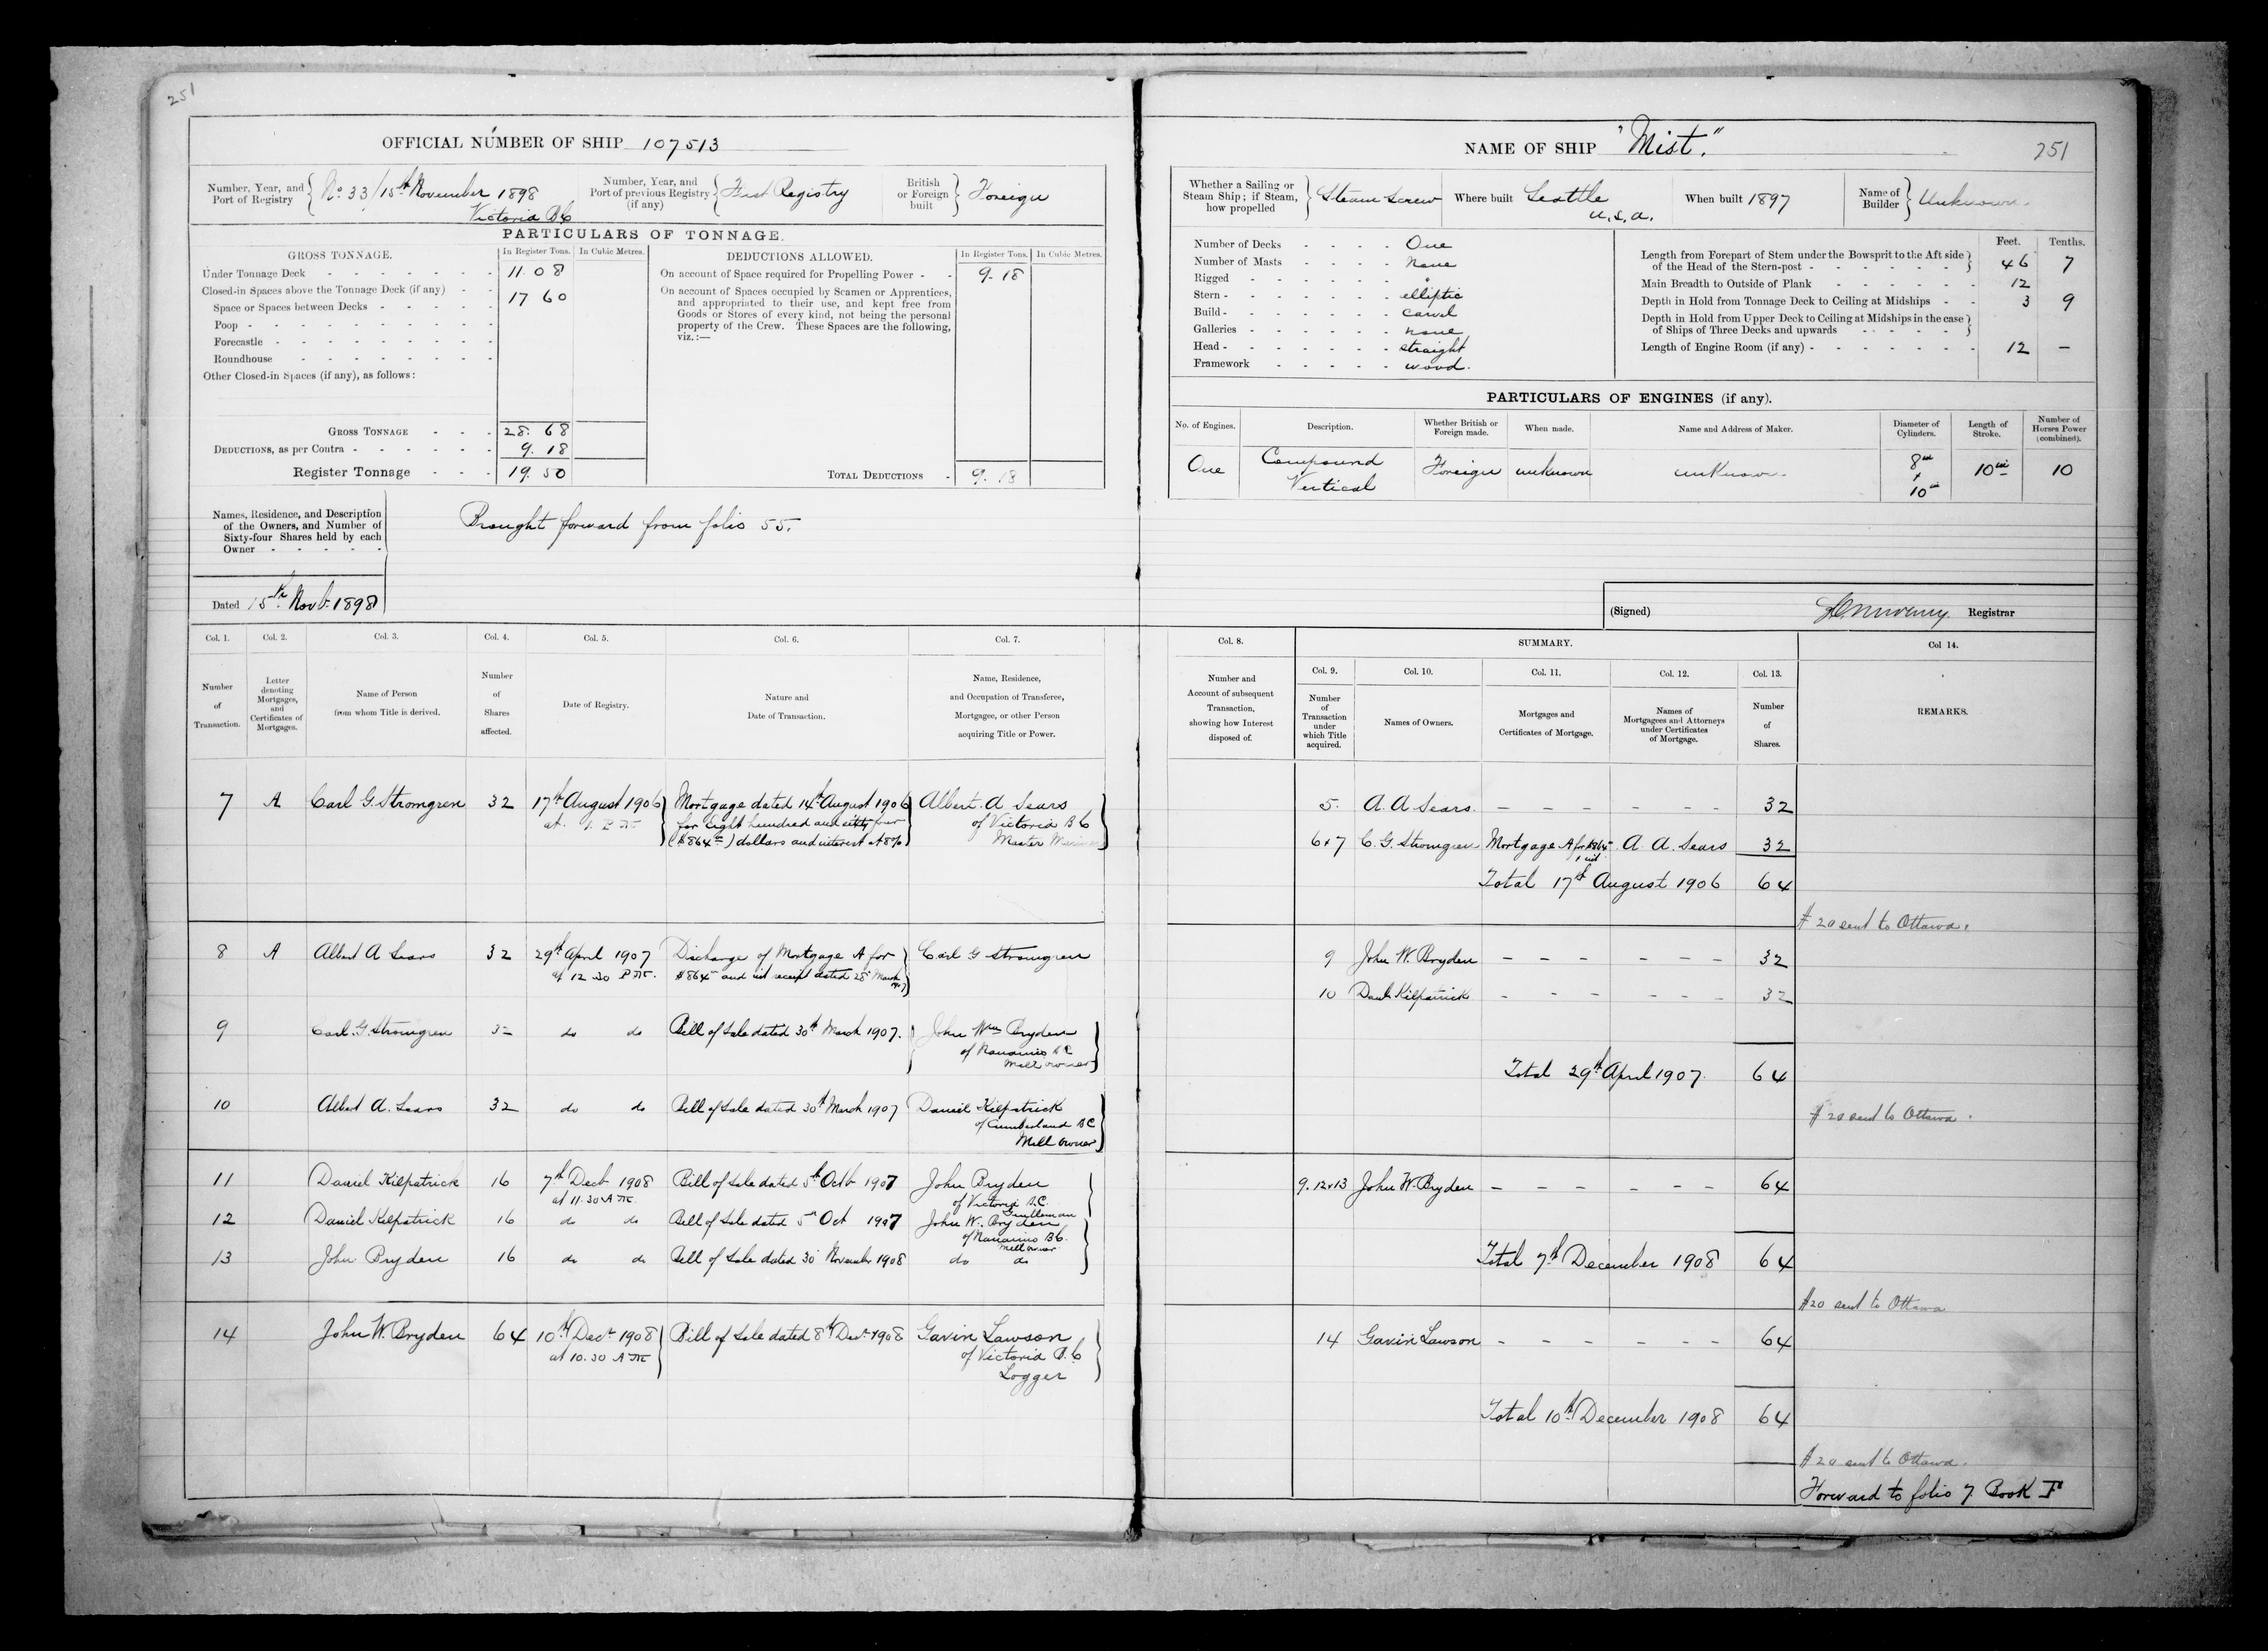 251
OFFICIAL NUMBER OF SHIP 107513
Number, Year, and Port of Registry { No 33/15th November 1898
Victoria BC
Number, Year, and Port of previous Registry (if any) { First Registry
British or Foreign built } Foreign
PARTICULARS OF TONNAGE.
GROSS TONNAGE. In Register Tons. In Cubic Metres.
Under Tonnage Deck 11.08
Closed-in Spaces above the Tonnage Deck (if any) 17 60
Space or Spaces between Decks
Poop
Forecastle
Roundhouse
Other Closed-in Spaces (if any), as follows:
GROSS TONNAGE 28. 68
DEDUCTIONS, as per Contra 9. 18
Register Tonnage 19. 50
DEDUCTIONS ALLOWED. In Register Tons. In Cubic Metres.
On account of Space required for Propelling Power 9. 18
On account of Spaces occupied by Seamen or Apprentices,
and appropriated to their use, and kept free from
Goods or Stores of every kind, not being the personal
property of the Crew. These Spaces are the following,
viz.:—
TOTAL DEDUCTIONS 9. 18
Names, Residence, and Description
of the Owners, and Number of
Sixty-four Shares held by each
Owner
Brought forward from folio 55.
Dated 15th Novb. 1898
Col. 1. Col. 2. Col. 3. Col. 4. Col. 5. Col. 6. Col. 7.
Number of Transaction.
Letter denoting Mortgages, and Certificates of Mortgages.
Name of Person from whom Title is derived.
Number of Shares affected.
Date of Registry.
Nature and Date of Transaction.
Name, Residence, and Occupation of Transferee, Mortgagee, or other Person acquiring Title or Power.
7 A Carl G. Stromgren 32 17th August 1906 Mortgage dated 14th August 1906 Albert. A Sears
at 1. P.M. for Eight hundred and sixty four of Victoria BC
($864 00) dollars and interest at 8% Master Mariner
8 A Albert A Sears 32 29th April 1907 Discharge of Mortgage A for Carl G Stromgren
at 12.30 P.M. $864 and int receipt dated 28th March
1907
9 Carl. G. Stromgren 32 do do Bill of Sale dated 30th March 1907. John Wm Bryden
of Nanaimo BC
Mill owner
10 Albert A. Sears 32 do do Bill of Sale dated 30th March 1907 Daniel Kilpatrick
of Cumberland BC
Mill owner
11 Daniel Kilpatrick 16 7th Decb 1908 Bill of Sale dated 5th Octb 1907 John Bryden
at 11.30 A.M. of Victoria B.C.
Gentleman
12 Daniel Kilpatrick 16 do do Bill of Sale dated 5th Oct 1907 John W. Bryden
of Nanaimo BC.
Mill owner
13 John Bryden 16 do do Bill of Sale dated 30 November 1908 do do
14 John W. Bryden 64 10th Decr 1908 Bill of Sale dated 8th Decr 1908 Gavin Lawson
at 10.30 A.M. of Victoria B.C
Logger
NAME OF SHIP "Mist." 251
Whether a Sailing or Steam Ship; if Steam, how propelled } Steam Screw
Where built Seattle
U.S.A.
When built 1897
Name of Builder } Unknown.
Number of Decks One
Number of Masts None
Rigged "
Stern elliptic
Build carvel
Galleries none
Head straight
Framework wood.
Feet. Tenths.
Length from Forepart of Stem under the Bowsprit to the Aft side
of the Head of the Stern-post 46 7
Main Breadth to Outside of Plank 12
Depth in Hold from Tonnage Deck to Ceiling at Midships 3 9
Depth in Hold from Upper Deck to Ceiling at Midships in the case
of Ships of Three Decks and upwards
Length of Engine Room (if any) 12 —
PARTICULARS OF ENGINES (if any).
No. of Engines. Description. Whether British or Foreign made. When made. Name and Address of Maker. Diameter of Cylinders. Length of Stroke. Number of Horses Power (combined).
One Compound Vertical Foreign unknown unknown 8 in & 10 in 10 in 10
(Signed) Registrar
Col. 8. SUMMARY. Col 14.
Col. 9. Col. 10. Col. 11. Col. 12. Col. 13.
Number and Account of subsequent Transaction, showing how Interest disposed of.
Number of Transaction under which Title acquired.
Names of Owners.
Mortgages and Certificates of Mortgage.
Names of Mortgagees and Attorneys under Certificates of Mortgage.
Number of Shares.
REMARKS.
5. A. A Sears. – – – – – 32
6&7 C. G. Stromgren Mortgage A for $864 & int A. A. Sears 32
Total 17th August 1906 64
# 20 sent to Ottawa.
9 John W. Bryden – – – – – 32
10 Danl Kilpatrick – – – – – – 32
Total 29th April 1907. 64
# 20 sent to Ottawa.
9.12&13 John W. Bryden – – – – – – 64
Total 7th December 1908 64
#20 sent to Ottawa
14 Gavin Lawson – – – – – – 64
Total 10th December 1908 64
# 20 sent to Ottawa.
Forward to folio 7. Book F